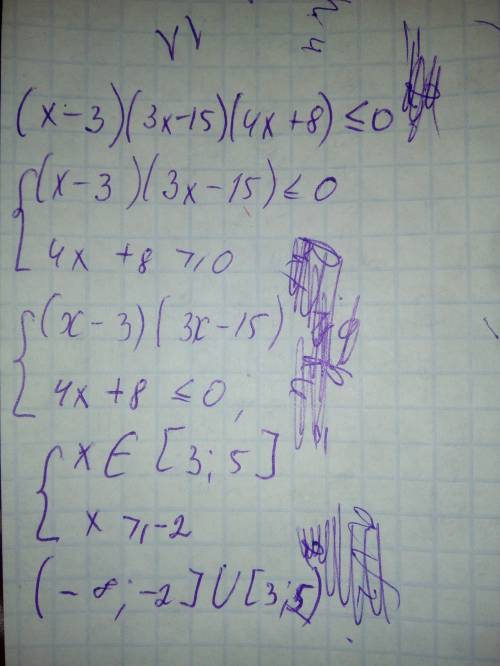 (x-3)(3x-15)(4x+8)≤0
{(x-3)(3x-15)≤0
4x+8≥0
{(x-3)(3x-15)
4x+8≤0,
{x∈[3;5]
x≥-2
(-∞;-2]∪[3;5)